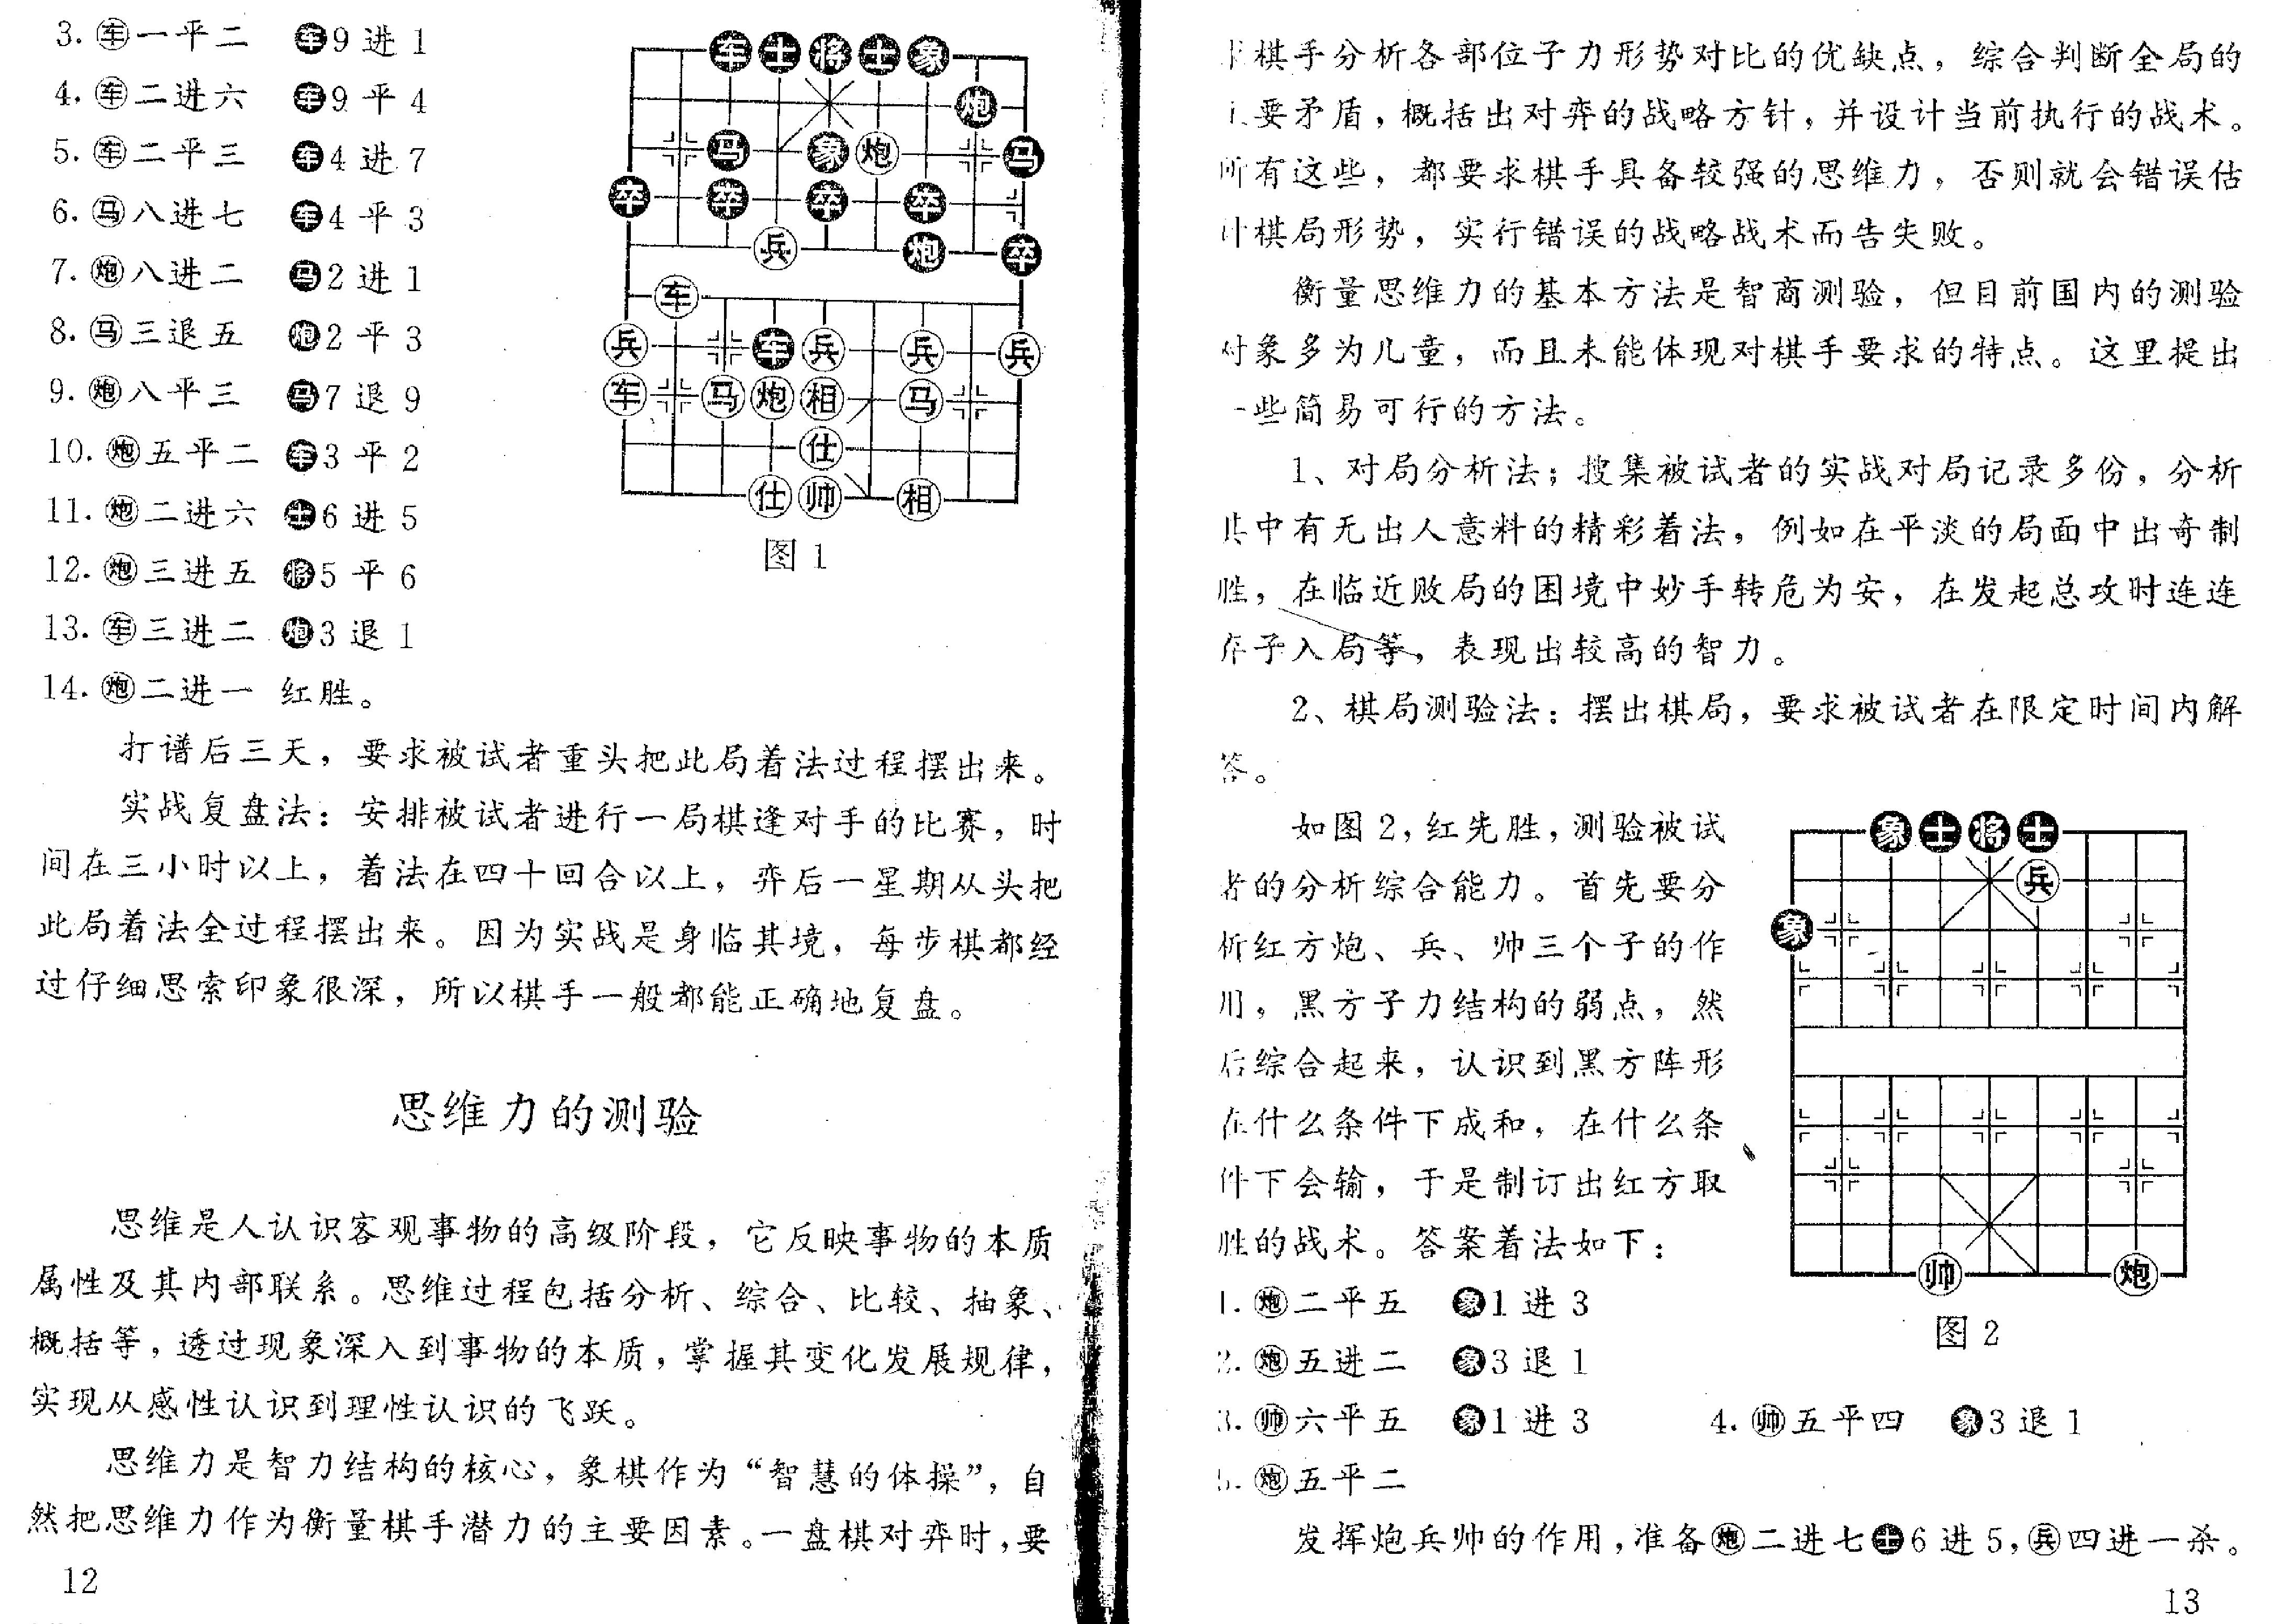 3. 车一平二　车9进1
4. 车二进六　车9平4
5. 车二平三　车4进7
6. 马八进七　车4平3
7. 炮八进二　马2进1
8. 马三退五　炮2平3
9. 炮八平三　马7退9
10. 炮五平二　车3平2
11. 炮二进六　士6进5
12. 炮三进五　将5平6
13. 车三进二　炮3退1
14. 炮二进一　红胜。
车士将士象
炮
马象炮马
卒卒卒卒
兵炮卒
车
兵车兵兵兵
车马炮相马
仕
仕帅相
图1
打谱后三天，要求被试者重头把此局着法过程摆出来。
实战复盘法：安排被试者进行一局棋逢对手的比赛，时
间在三小时以上，着法在四十回合以上，弈后一星期从头把
此局着法全过程摆出来。因为实战是身临其境，每步棋都经
过仔细思索印象很深，所以棋手一般都能正确地复盘。
思维力的测验
思维是人认识客观事物的高级阶段，它反映事物的本质
属性及其内部联系。思维过程包括分析、综合、比较、抽象、
概括等，透过现象深入到事物的本质，掌握其变化发展规律，
实现从感性认识到理性认识的飞跃。
思维力是智力结构的核心，象棋作为“智慧的体操”，自
然把思维力作为衡量棋手潜力的主要因素。一盘棋对弈时，要
12
棋手分析各部位子力形势对比的优缺点，综合判断全局的
要矛盾，概括出对弈的战略方针，并设计当前执行的战术。
所有这些，都要求棋手具备较强的思维力，否则就会错误估
计棋局形势，实行错误的战略战术而告失败。
衡量思维力的基本方法是智商测验，但目前国内的测验
对象多为儿童，而且未能体现对棋手要求的特点。这里提出
一些简易可行的方法。
1、对局分析法；搜集被试者的实战对局记录多份，分析
其中有无出人意料的精彩着法，例如在平淡的局面中出奇制
胜，在临近败局的困境中妙手转危为安，在发起总攻时连连
弃子入局等，表现出较高的智力。
2、棋局测验法：摆出棋局，要求被试者在限定时间内解
答。
如图2，红先胜，测验被试
者的分析综合能力。首先要分
析红方炮、兵、帅三个子的作
用，黑方子力结构的弱点，然
后综合起来，认识到黑方阵形
在什么条件下成和，在什么条
件下会输，于是制订出红方取
胜的战术。答案着法如下：
象士将士
兵
象
帅炮
图2
1. 炮二平五　象1进3
2. 炮五进二　象3退1
3. 帅六平五　象1进3　4. 帅五平四　象3退1
5. 炮五平二
发挥炮兵帅的作用，准备炮二进七士6进5，兵四进一杀。
13